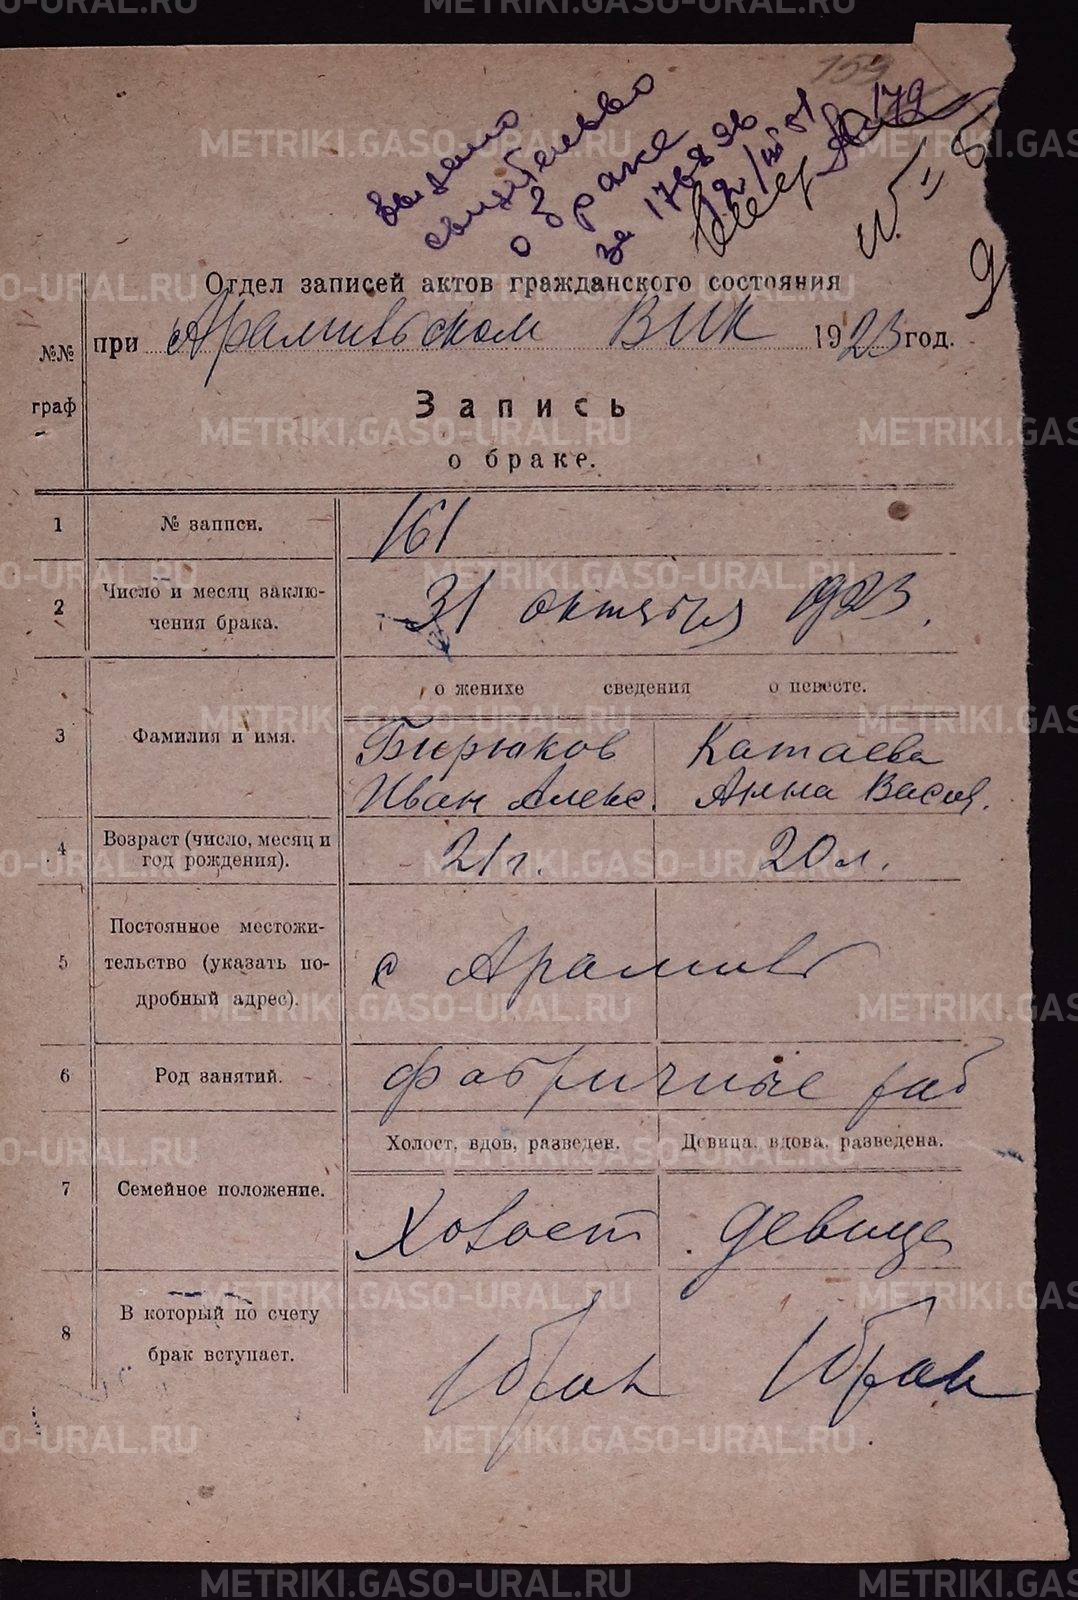 METRIKI.GASO-URAL.RU
159
Выдано
свидетельство
о браке
за 1768
12/III 51
179
Отдел записей актов гражданского состояния
при Арамильском ВИК 1923 год.
№№ граф
Запись
о браке.
1 № записи. 161
2 Число и месяц заклю-
чения брака. 31 октября 1923.
о женихе сведения о невесте.
3 Фамилия и имя. Бирюков Катаева
Иван Алекс. Анна Васил.
4 Возраст (число, месяц и
год рождения). 21 г. 20 л.
Постоянное местожи-
5 тельство (указать по-
дробный адрес). с Арамиль
6 Род занятий. фабричные раб
Холост, вдов, разведен. Девица, вдова, разведена.
7 Семейное положение. Холост девица
8 В который по счету
брак вступает. 1 брак 1 брак